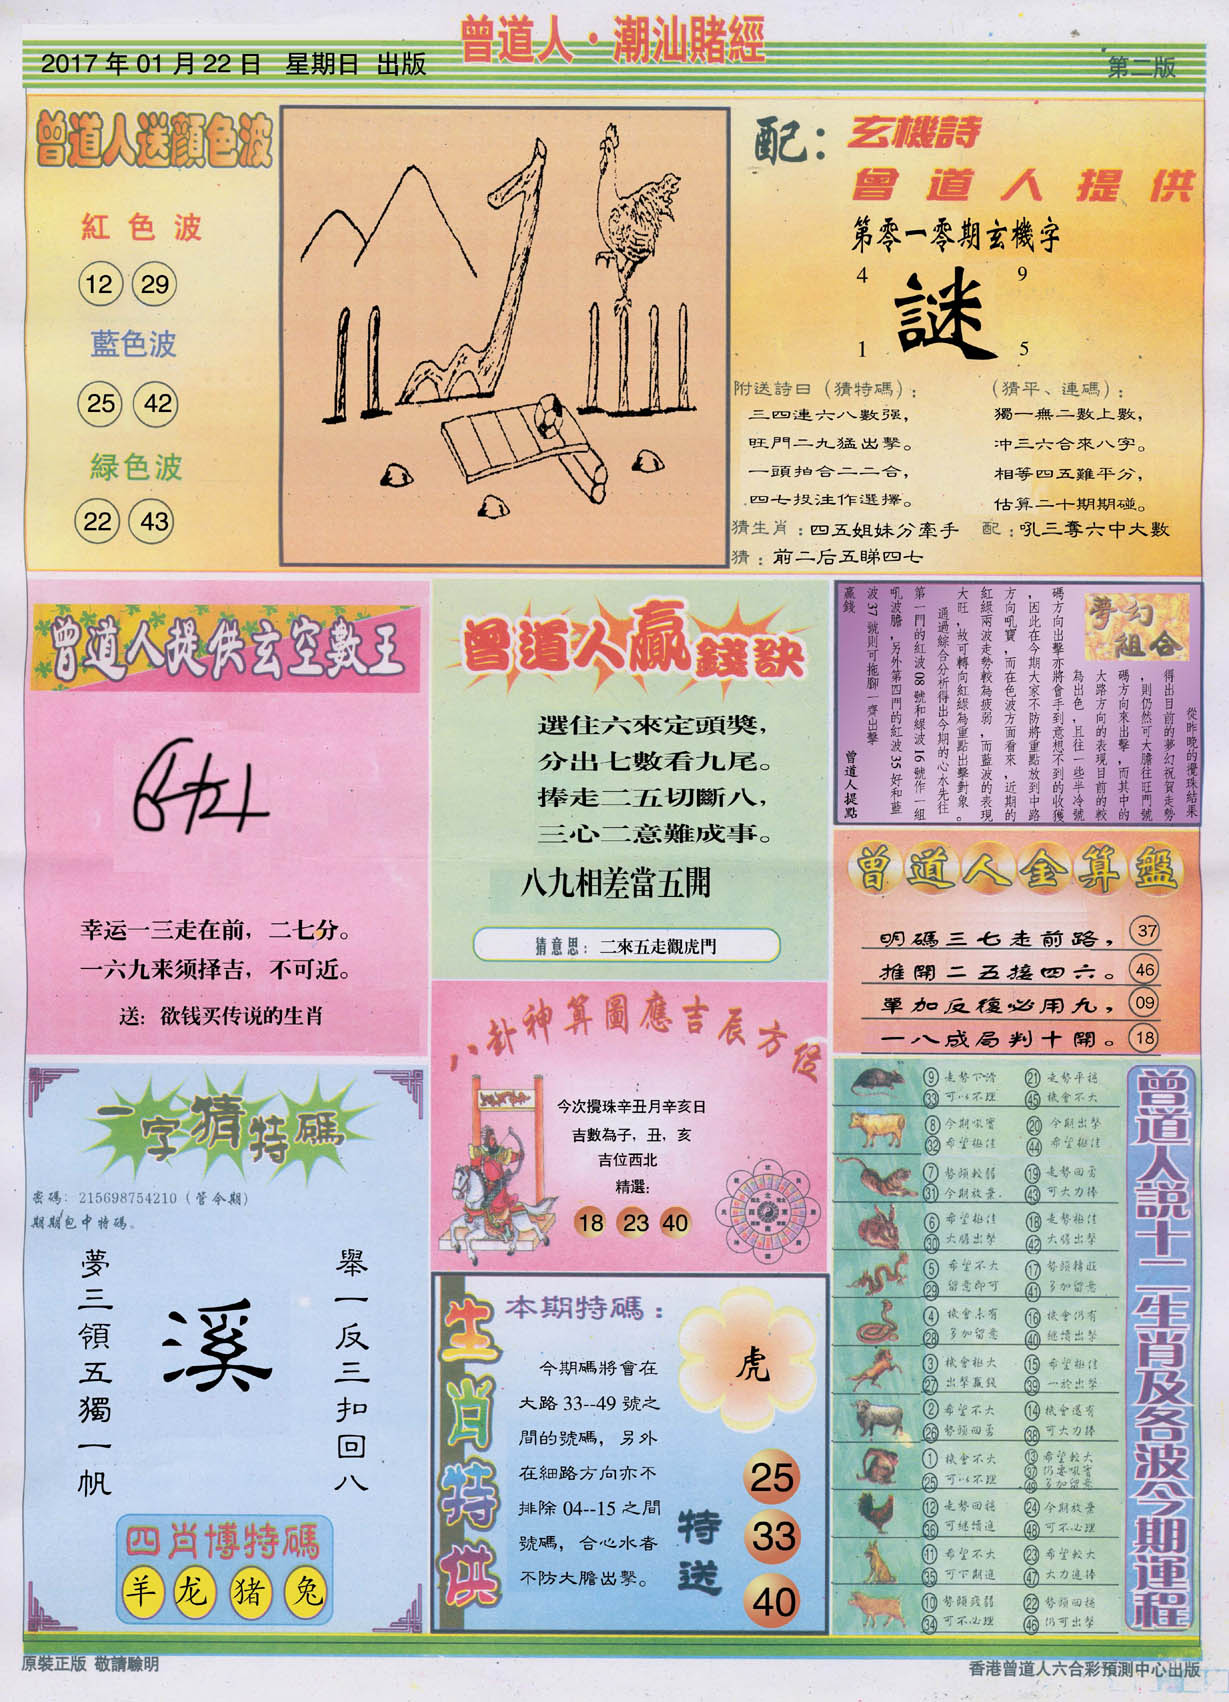 2017 年 01 月 22 日 星期日 出版
曾道人·潮汕賭經
第二版
曾道人送顏色波
紅色波
12 29
藍色波
25 42
緑色波
22 43
配：玄機詩
曾道人提供
第零一零期玄機字
4 9
謎
1 5
附送詩曰（猜特碼）：
三四連六八數强，
旺門二九猛出擊。
一頭拍合二二合，
四七投注作選擇。
（猜平、連碼）：
獨一無二數上數，
冲三六合來八字。
相等四五難平分，
估算二十期期碰。
猜生肖：四五姐妹分牽手
配：吼三奪六中大數
猜：前二后五睇四七
曾道人提供玄空數王
幸运一三走在前，二七分。
一六九来须择吉，不可近。
送：欲钱买传说的生肖
曾道人贏錢訣
選住六來定頭獎，
分出七數看九尾。
捧走二五切斷八，
三心二意難成事。
八九相差當五開
猜意思：二來五走觀虎門
夢幻組合
從昨晚的攪珠結果
得出目前的夢幻祝賀走勢
，則仍然可大膽往旺門號
碼方向來出擊，而其中的
大路方向的表現目前的較
為出色，且往一些半冷號
碼方向出擊亦將會手到意想不到的收獲
，因此在今期大家不防將重點放到中路
方向吼寶，而在色波方面看來，近期的
紅綠兩波走勢較為疲弱，而藍波的表現
大旺，故可轉向紅綠為重點出擊對象。
通過綜合分析得出今期的心水先往
第一門的紅波 08 號和緑波 16 號作一組
吼波膽，另外第四門的紅波 35 好和藍
波 37 號則可拖腳一齊出擊
贏錢
曾道人提點
曾道人金算盤
明碼三七走前路， 37
推開二五接四六。 46
單加反復必用九， 09
一八成局判十開。 18
八卦神算圖應吉辰方位
今次攪珠辛丑月辛亥日
吉數為子，丑，亥
吉位西北
精選：
18 23 40
一字猜特碼
密碼：215698754210（管今期）
期期包中特碼。
舉一反三扣回八
溪
夢三領五獨一帆
四肖博特碼
羊 龙 猪 兔
生肖特供
本期特碼：
虎
今期碼將會在
大路 33--49 號之
間的號碼，另外
在細路方向亦不
排除 04--15 之間
號碼，合心水者
不防大膽出擊。
特送
25
33
40
曾道人説十二生肖及各波今期運程
9 走勢下滑 21 走勢平穩
33 可以不理 45 機會不大
8 今期吼寶 20 今期出擊
32 希望極佳 44 希望極佳
7 勢頭較弱 19 走勢回勇
31 今期放棄 43 可大力捧
6 希望極佳 18 走勢極佳
30 大膽出擊 42 大膽出擊
5 希望不大 17 勢頭轉旺
29 留意即可 41 多加留意
4 機會未有 16 機會仍有
28 多加留意 40 繼續出擊
3 機會極大 15 希望極佳
27 出擊贏錢 39 一於出擊
2 希望不大 14 機會還有
26 勢頭回勇 38 可大力捧
1 機會不大 13 希望較大
25 可以不理 37 仍要吼寶
49 多加留意
12 走勢回穩 24 今期放棄
36 可繼續進 48 可不必理
11 希望不大 23 希望較大
35 可下期進 47 大力進捧
10 勢頭疲弱 22 勢頭回穩
34 可不必理 46 仍可出擊
原裝正版 敬請驗明
香港曾道人六合彩預測中心出版